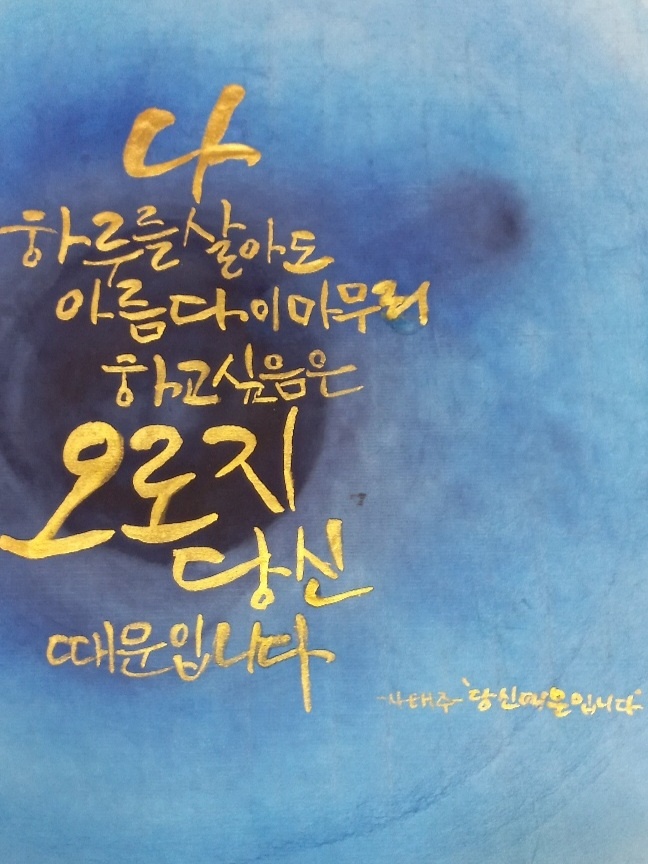 나
하루를 살아도
아름다이 마무리
하고 싶음은
오로지
당신
때문입니다
-나태주- '당신 때문입니다'